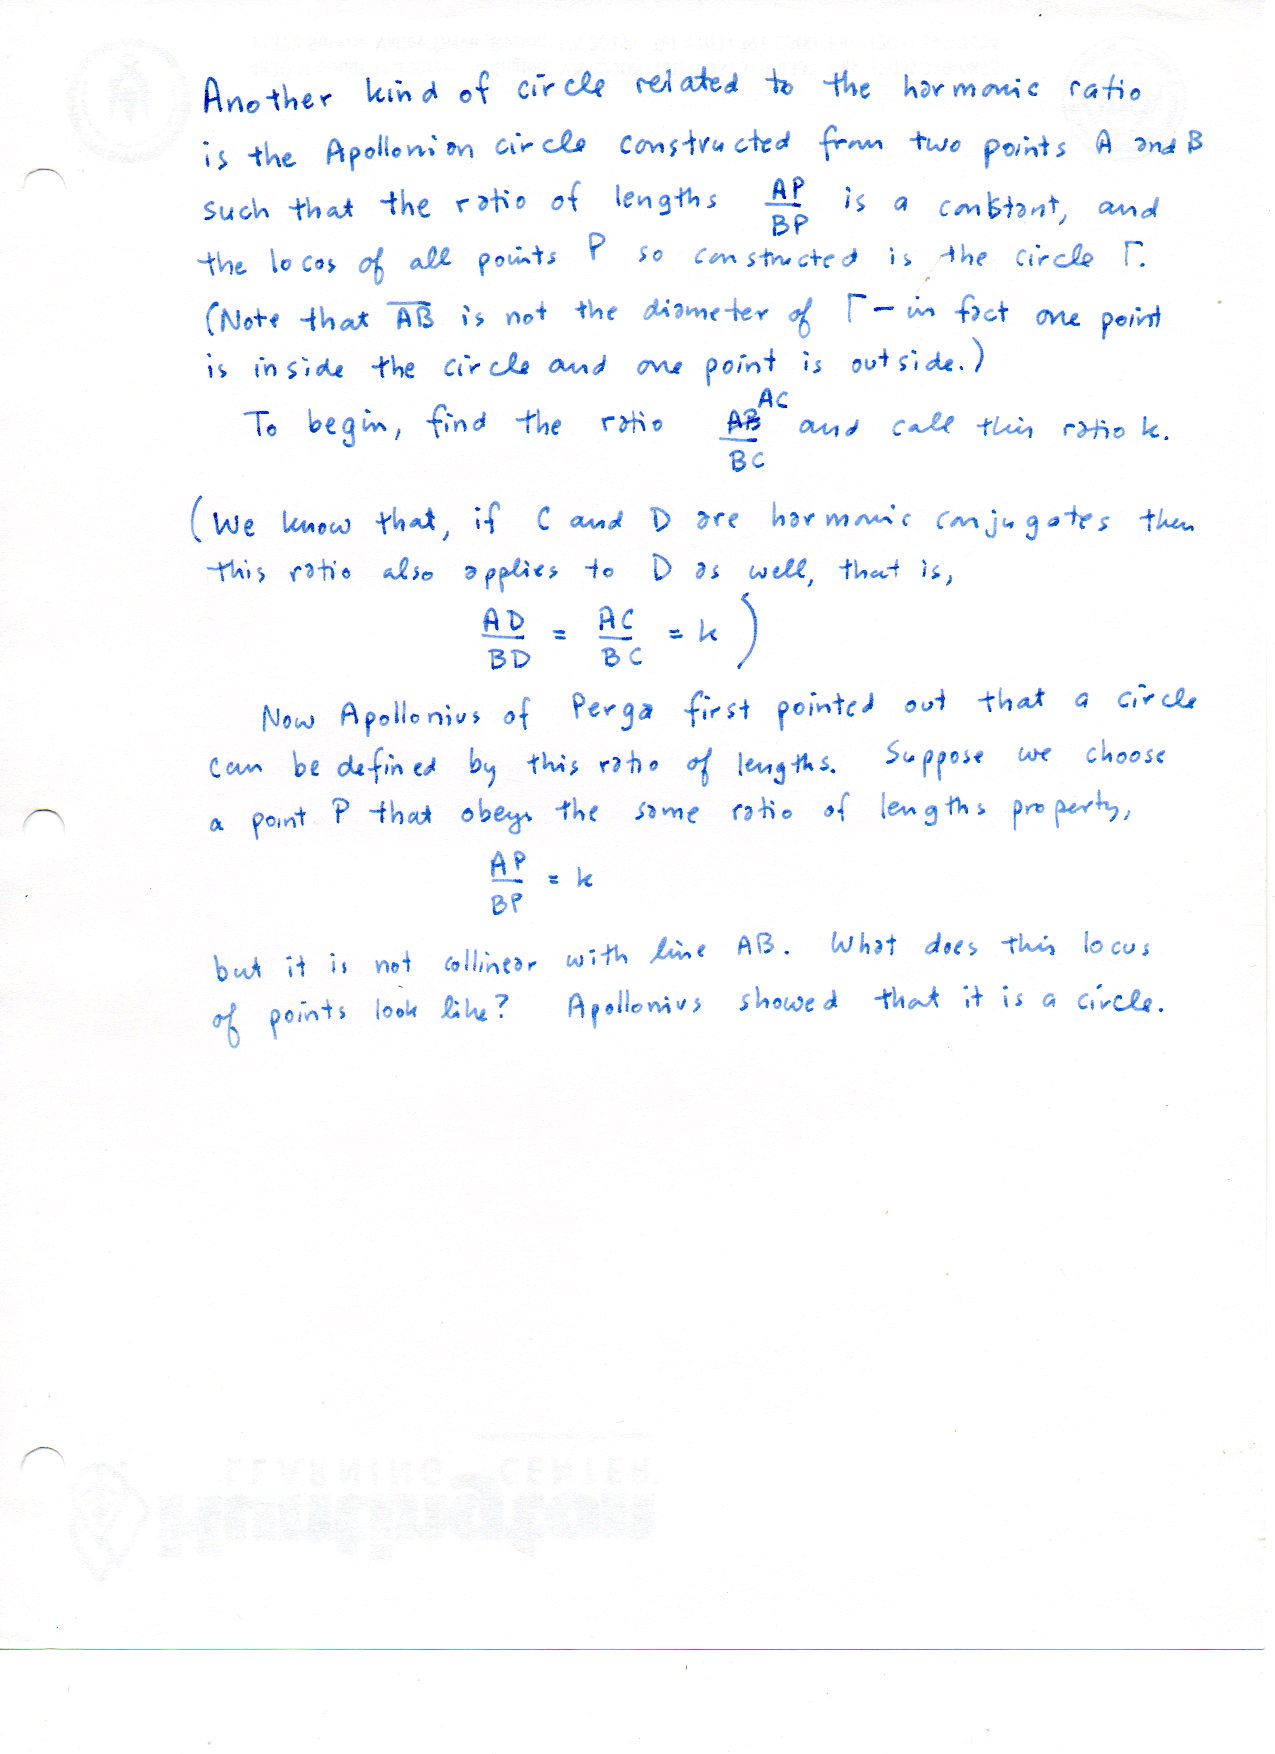 Another kind of circle related to the harmonic ratio
is the Apollonian circle constructed from two points A and B
such that the ratio of lengths AP/BP is a constant, and
the locos of all points P so constructed is the circle Γ.
(Note that A̅B̅ is not the diameter of Γ – in fact one point
is inside the circle and one point is outside.)
To begin, find the ratio AC/BC and call this ratio k.
(We know that, if C and D are harmonic conjugates then
this ratio also applies to D as well, that is,
AD/BD = AC/BC = k)
Now Apollonius of Perga first pointed out that a circle
can be defined by this ratio of lengths. Suppose we choose
a point P that obeys the same ratio of lengths property,
AP/BP = k
but it is not collinear with line AB. What does this locus
of points look like? Apollonius showed that it is a circle.
LEARNING CENTER
Huntington